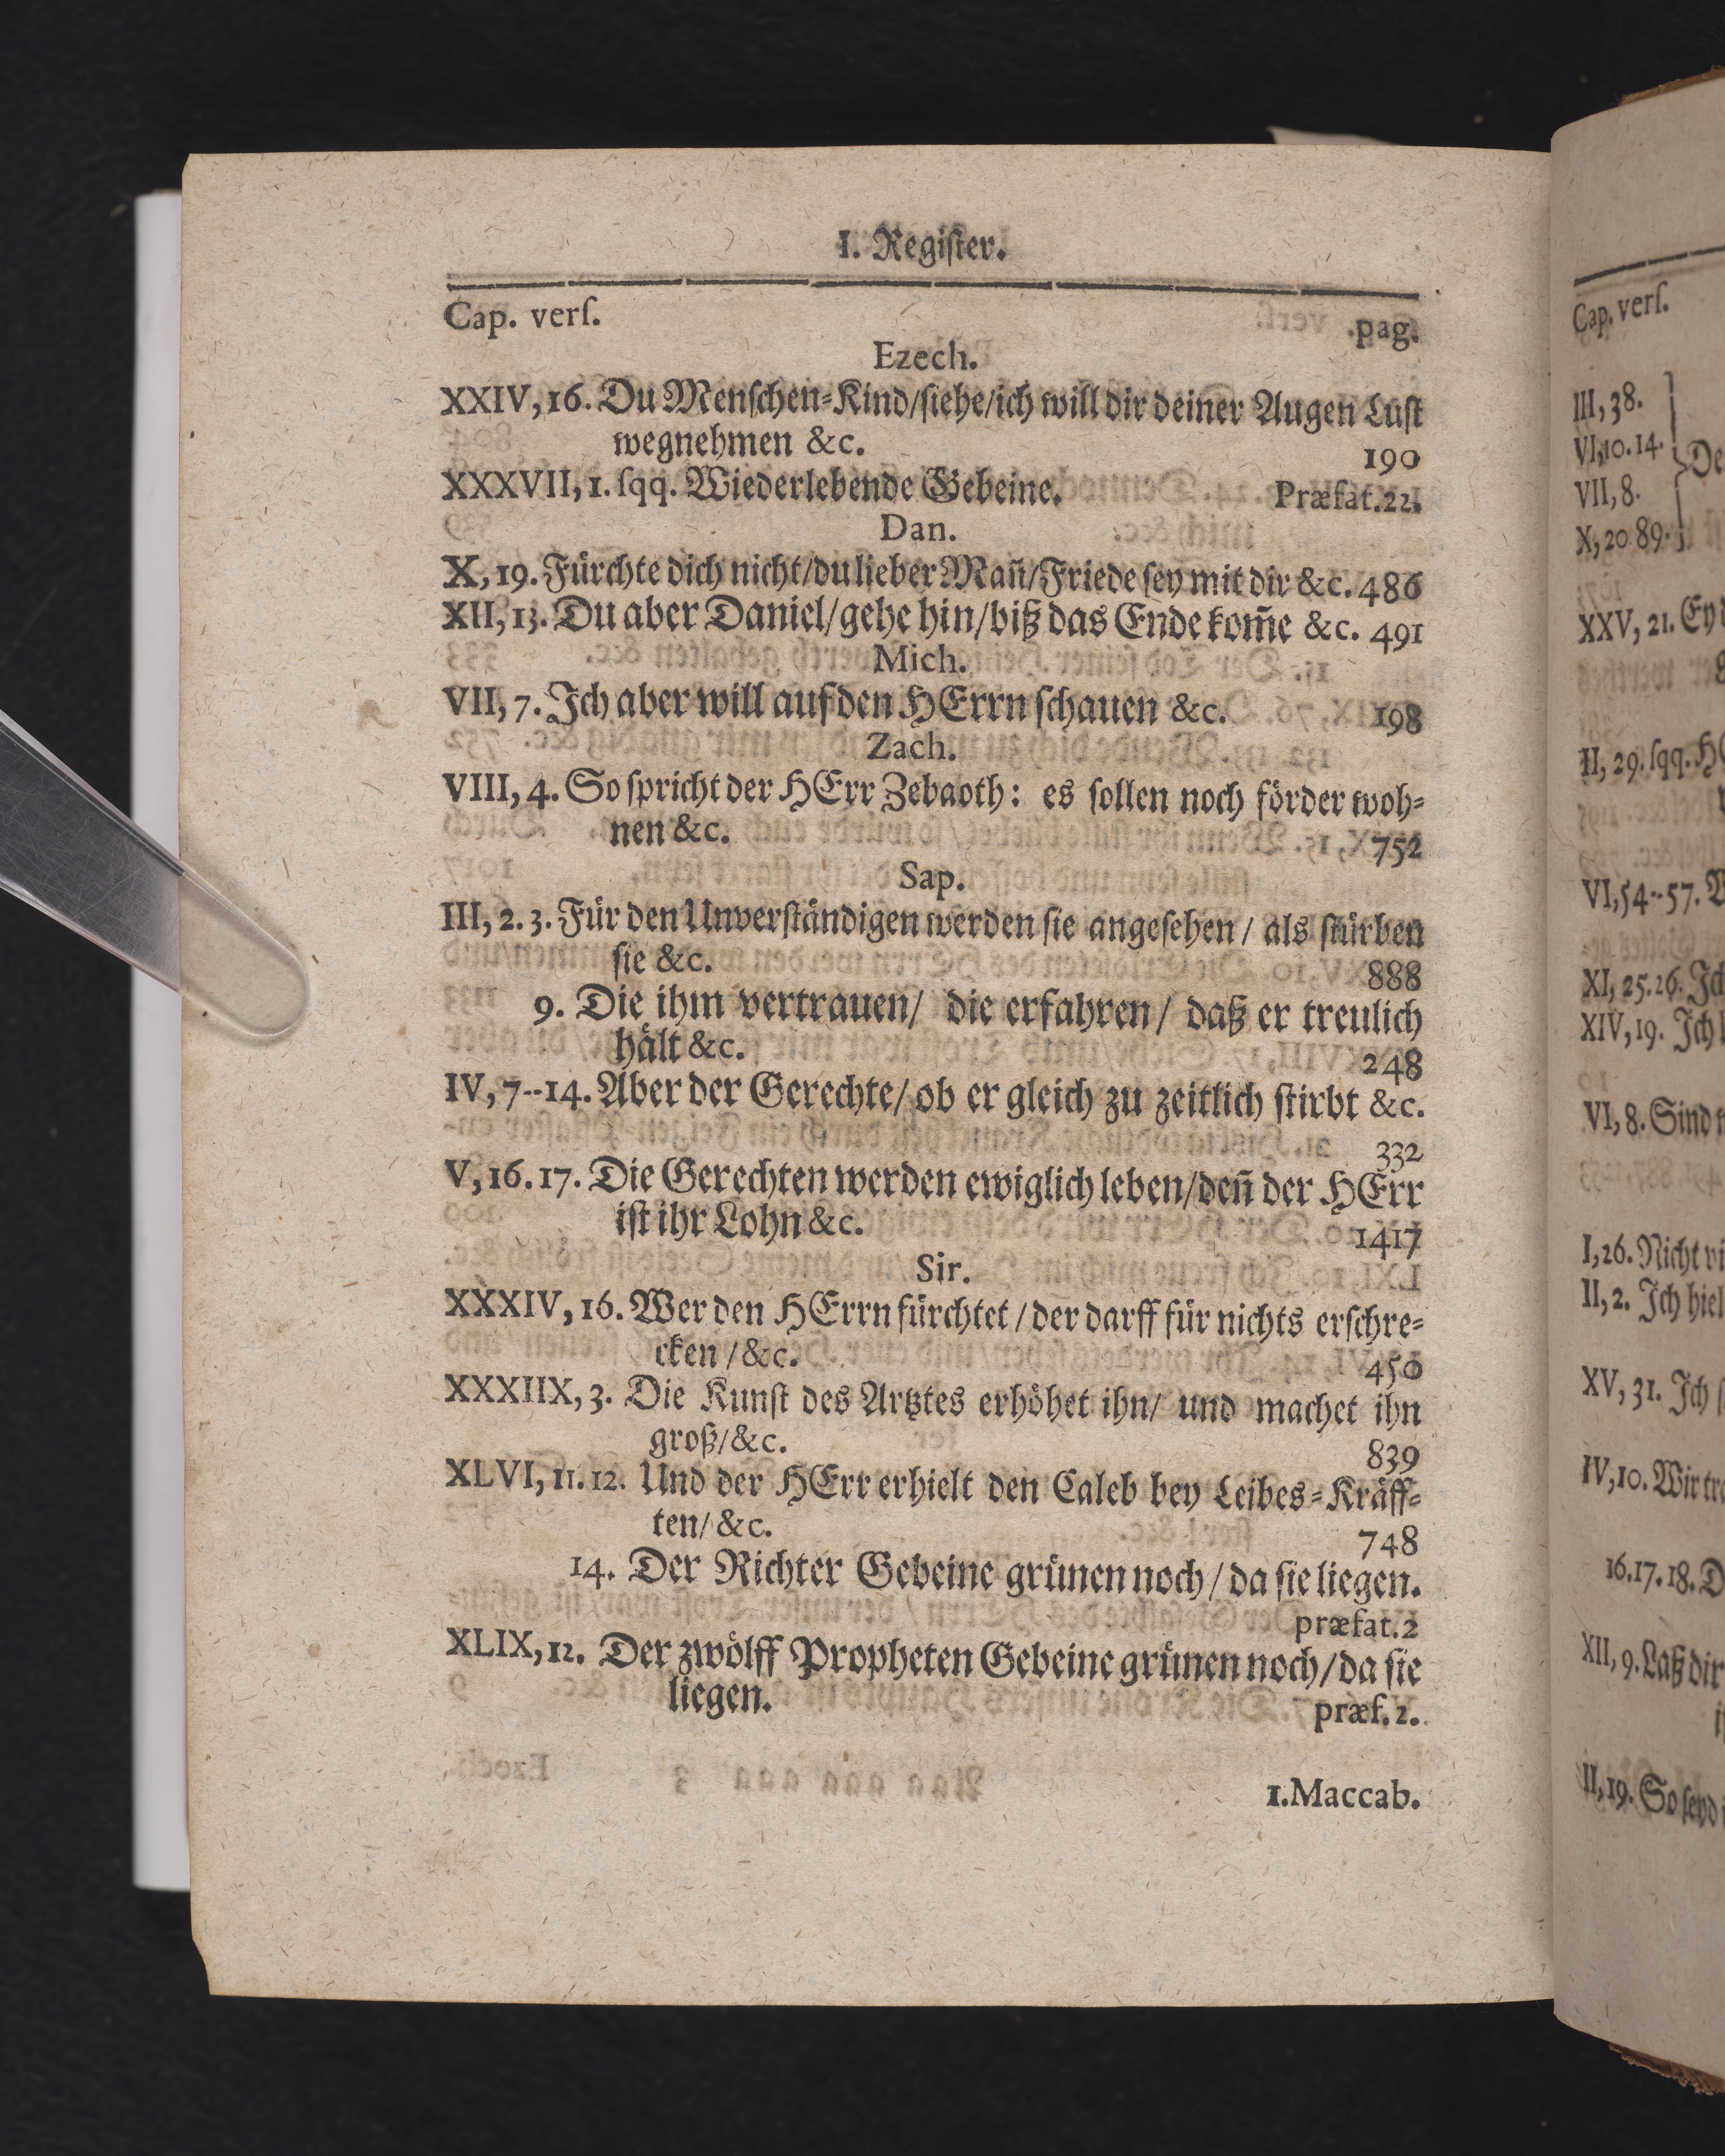 I. Regiſter.
Cap. verſ. pag.
Ezech.
XXIV, 16. Du Menſchen-Kind/ſiehe/ich will dir deiner Augen Luſt
wegnehmen &c. 190
XXXVII, 1. ſqq. Wiederlebende Gebeine. Præfat. 22.
Dan.
X, 19. Fürchte dich nicht/du lieber Mañ/Friede ſey mit dir &c. 486
XII, 13. Du aber Daniel/gehe hin/biß das Ende kom̃e &c. 491
Mich.
VII, 7. Ich aber will auf den HErrn ſchauen &c. 198
Zach.
VIII, 4. So ſpricht der HErr Zebaoth: es ſollen noch förder woh-
nen &c. 752
Sap.
III, 2. 3. Für den Unverſtändigen werden ſie angeſehen/ als ſtürben
ſie &c. 888
9. Die ihm vertrauen/ die erfahren/ daß er treulich
hält &c. 248
IV, 7--14. Aber der Gerechte/ ob er gleich zu zeitlich ſtirbt &c.
332
V, 16. 17. Die Gerechten werden ewiglich leben/deñ der HErr
iſt ihr Lohn &c. 1417
Sir.
XXXIV, 16. Wer den HErrn fürchtet / der darff für nichts erſchre-
cken / &c. 450
XXXIIX, 3. Die Kunſt des Artztes erhöhet ihn/ und machet ihn
groß/ &c. 839
XLVI, 11. 12. Und der HErr erhielt den Caleb bey Leibes-Kräff-
ten/ &c. 748
14. Der Richter Gebeine grünen noch / da ſie liegen.
præfat. 2
XLIX, 12. Der zwölff Propheten Gebeine grünen noch/ da ſie
liegen. præf. 2.
1. Maccab.
Cap. verſ.
III, 38.
VI, 10. 14.
VII, 8.
X, 20 89.
XXV, 21.
II, 29. ſqq.
VI, 54--57.
XI, 25. 26.
XIV, 19. Ich
VI, 8. Sind
I, 26. Nicht
II, 2. Ich
XV, 31. Ich
IV, 10. Wir
16. 17. 18.
XII, 9. Laß dir
II, 19. So ſeyd